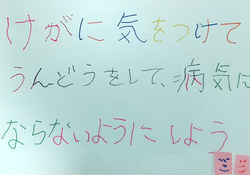 けがに気をつけて
うんどうをして、病気に
ならないようにしよう